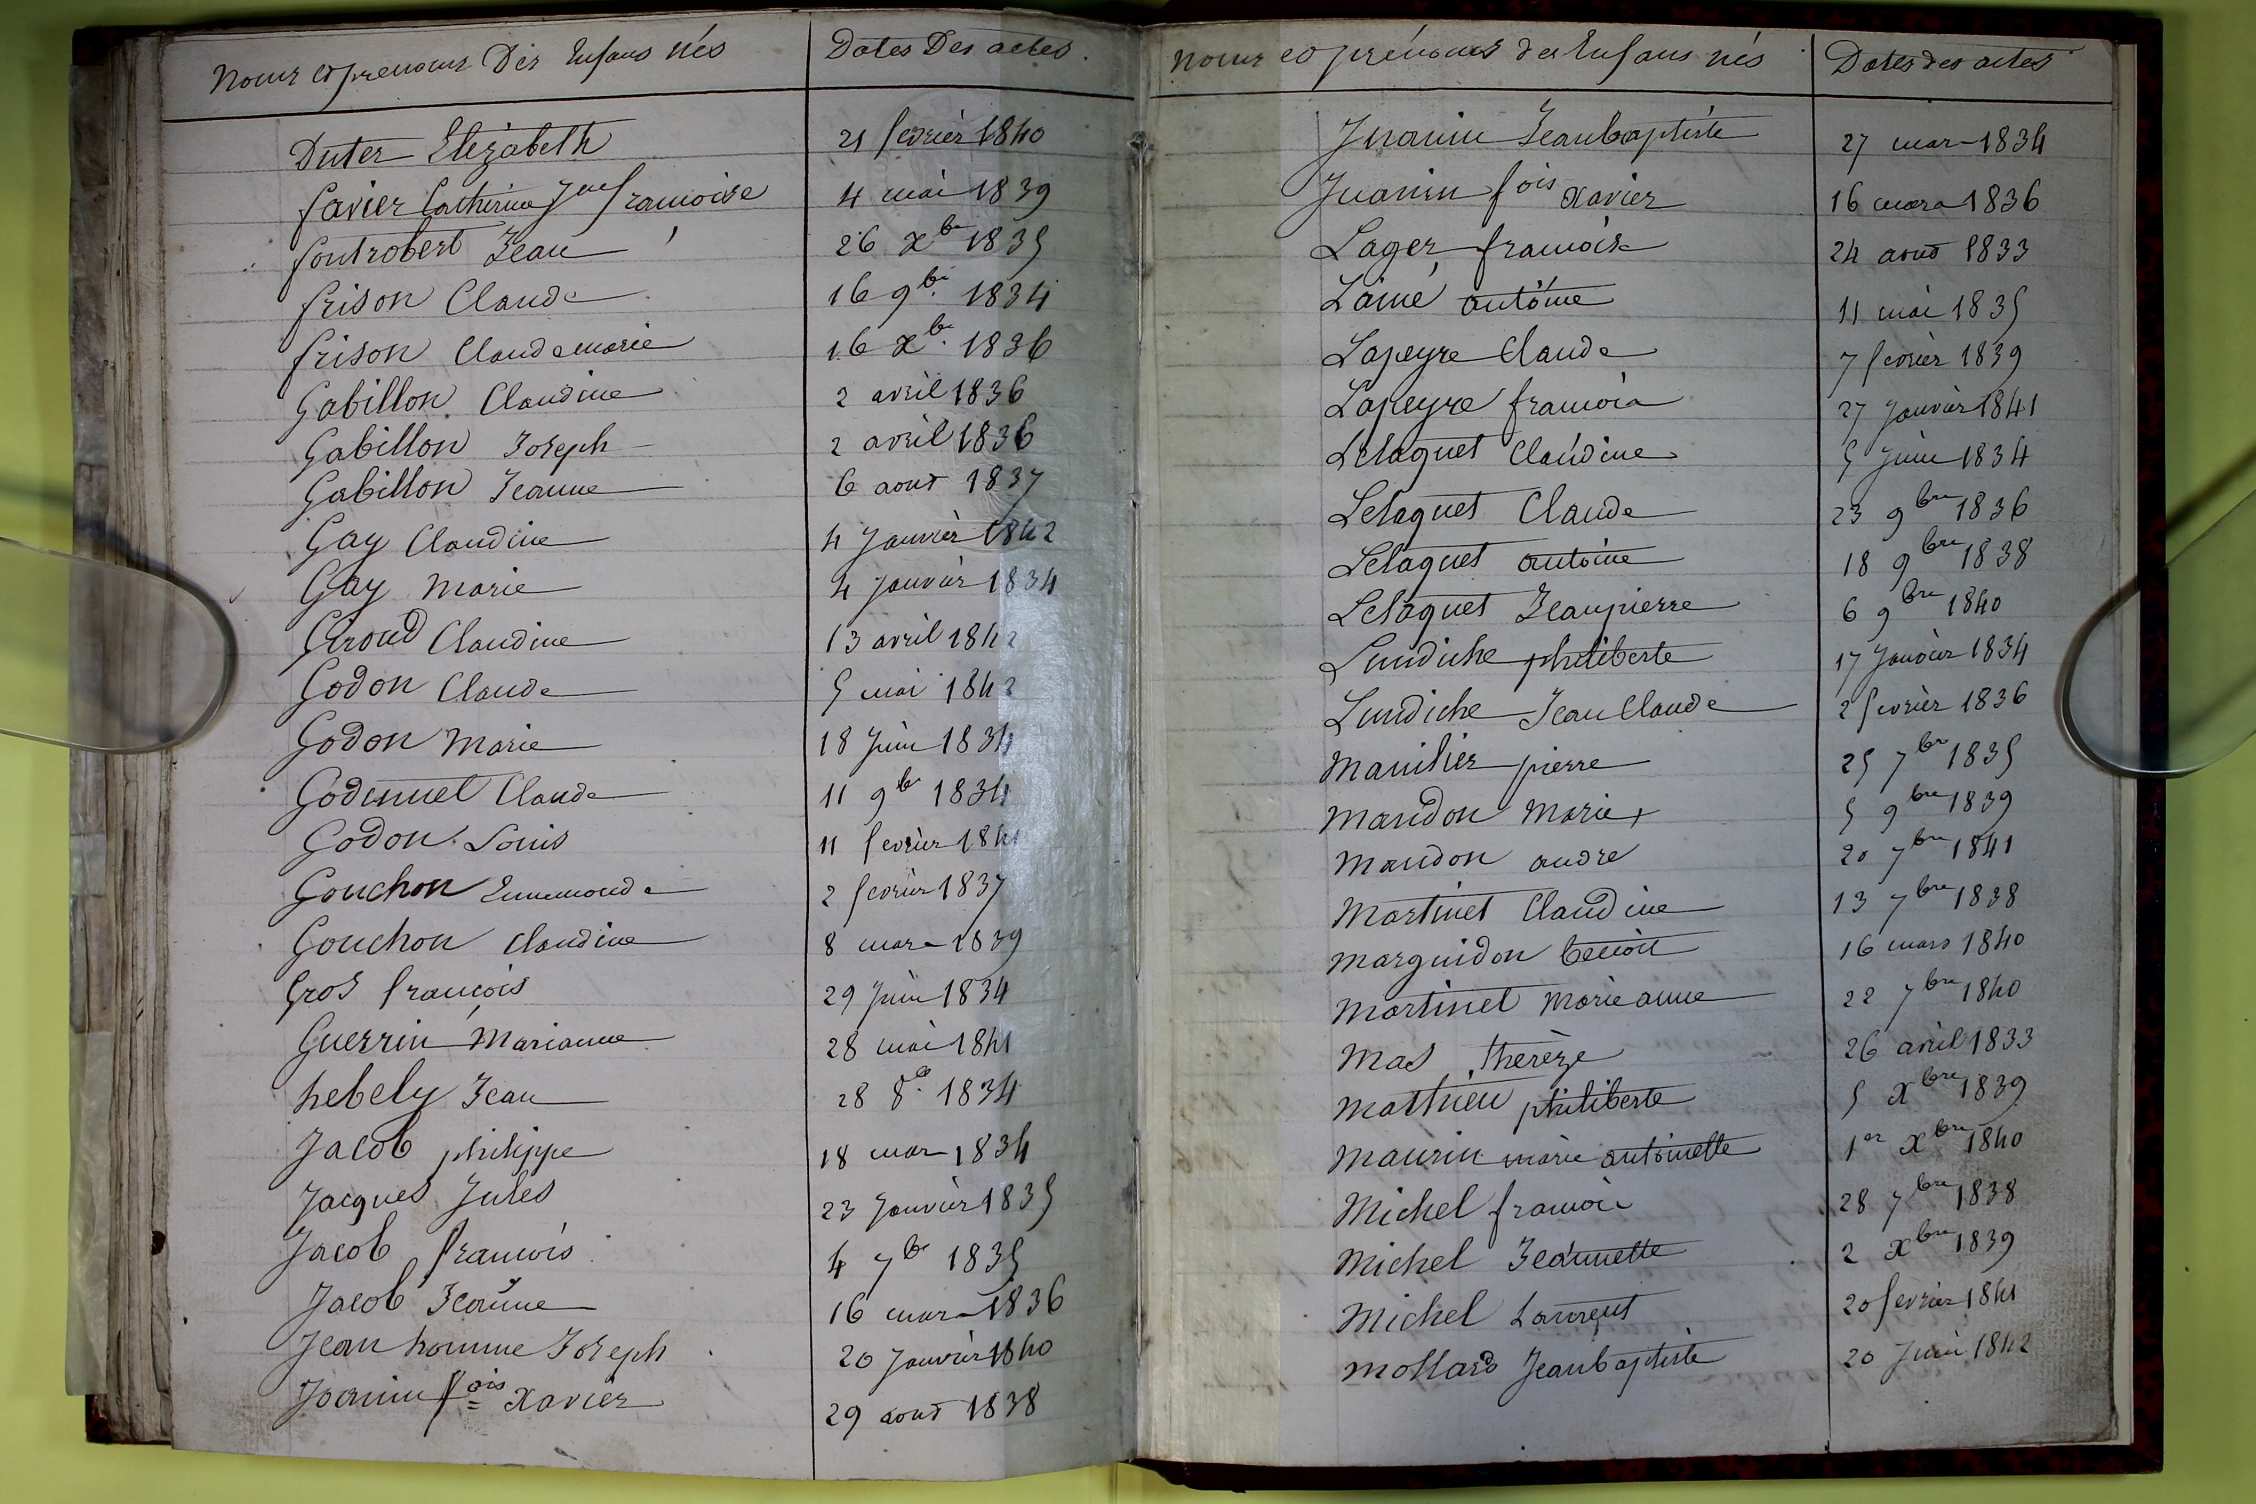 Noms et prenoms Des Enfans nés Dates Des actes.
Duter Elizabeth 21 fevrier 1840
favier Catherine Jne francoise 4 mai 1839
fontrobert Jean 26 xbre 1835
frison Claude 16 9bre 1834
frison Claude marie 16 xbre 1836
Gabillon Claudine 2 avril 1836
Gabillon Joseph 2 avril 1836
Gabillon Jeanne 6 aout 1837
Gay Claudine 4 Janvier 1842
Gay Marie 4 Janvier 1834
Giroud Claudine 13 avril 1842
Godon Claude 5 mai 1842
Godon Marie 18 Juin 1834
Godemuel Claude 11 9bre 1834
Godon Louis 11 fevrier 1841
Gouchon Ennemonde 2 fevrier 1837
Gouchon Claudine 8 mars 1839
Gros francois 29 Juin 1834
Guerrin Marianne 28 mai 1841
hebely Jean 28 8e 1834
Jacob philippe 18 mars 1834
Jacques Jules 23 Janvier 1835
Jacob francois 4 7bre 1835
Jacob Jeanne 16 mars 1836
Jean homme Joseph 20 Janvier 1840
Joanin fois Xavier 29 aout 1838
Noms et prénoms des Enfans nés Dates des actes
Juanin Jean baptiste 27 mars 1834
Juanin fois Xavier 16 mars 1836
Lager francoise 24 aout 1833
Lainé antoine 11 mai 1835
Lapeyre Claude 7 fevrier 1839
Lapeyre francois 27 Janvier 1841
Lelaquet Claudine 5 Juin 1834
Lelaquet Claude 23 9bre 1836
Lelaquet antoine 18 9bre 1838
Lelaquet Jean pierre 6 9bre 1840
Lundiche philiberte 17 Janvier 1834
Lundiche Jean Claude 2 fevrier 1836
Manilier pierre 25 7bre 1835
Mandon Marie + 5 9bre 1839
Mandon andre 20 7bre 1841
Martinet Claudine 13 7bre 1838
Marguidon benoit 16 mars 1840
Martinet Marie anne 22 7bre 1840
Mas therèze 26 avril 1833
Mathieu philiberte 5 xbre 1839
Maurin marie antoinette 1er xbre 1840
Michel francois 28 7bre 1838
Michel Jeannette 2 xbre 1839
Michel Laurent 20 fevrier 1841
Mollard Jean baptiste 20 Juin 1842